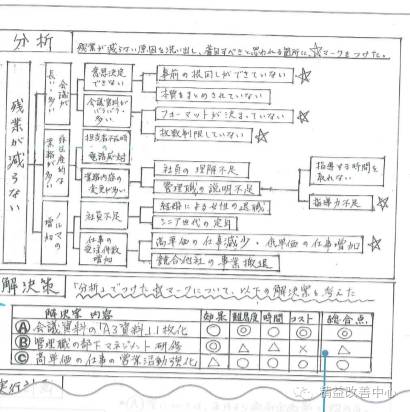 分析
残業が減らない原因を洗い出し、着目すべきと思われる箇所に、☆マークをつけた。
残業が減らない
会議が長い・多い
意思決定できない
事前の根回しができていない
本質をまとめきれていない
会議資料がバラバラ・多い
フォーマットが決まっていない
枚数制限していない
非生産的な業務が多い
担当者不在時の電話応対
業務内容の変更が多い
社員の理解不足
管理職の説明不足
指導する時間を取れない
指導力不足
ノルマの増加
社員不足
結婚による女性の退職
シニア世代の定年
仕事の受注件数増加
高単価の仕事減少・低単価の仕事増加
競合他社の事業撤退
解決策
「分析」でつけた☆マークについて、以下の解決案を考えた
解決案 内容 効果 難易度 時間 コスト 総合点
Ⓐ 会議資料の「A3資料」1枚化 ○ ◎ ○ ◎ ◎
Ⓑ 管理職の部下マネジメント研修 ◎ △ △ × △
Ⓒ 高単価の仕事の営業活動強化 △ ○ ○ ○ △
精益改善中心